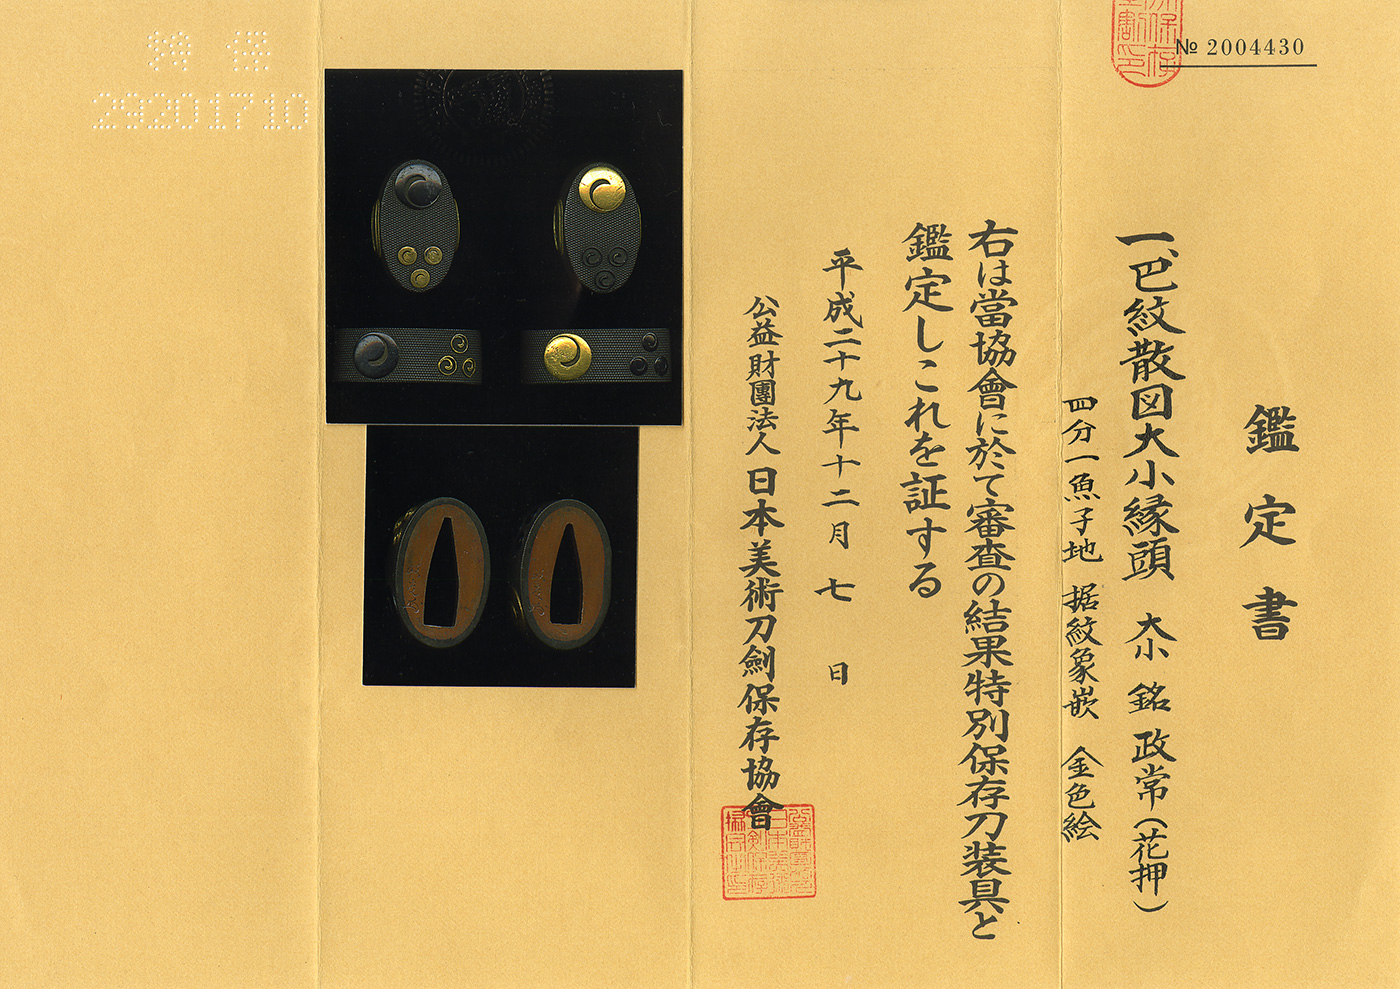 № 2004430
鑑定書
一、巴紋散図大小縁頭 大小 銘 政常(花押)
四分一魚子地 据紋象嵌 金色絵
右は當協會に於て審査の結果特別保存刀装具と
鑑定しこれを証する
平成二十九年十二月七日
公益財團法人日本美術刀劍保存協會
29201710